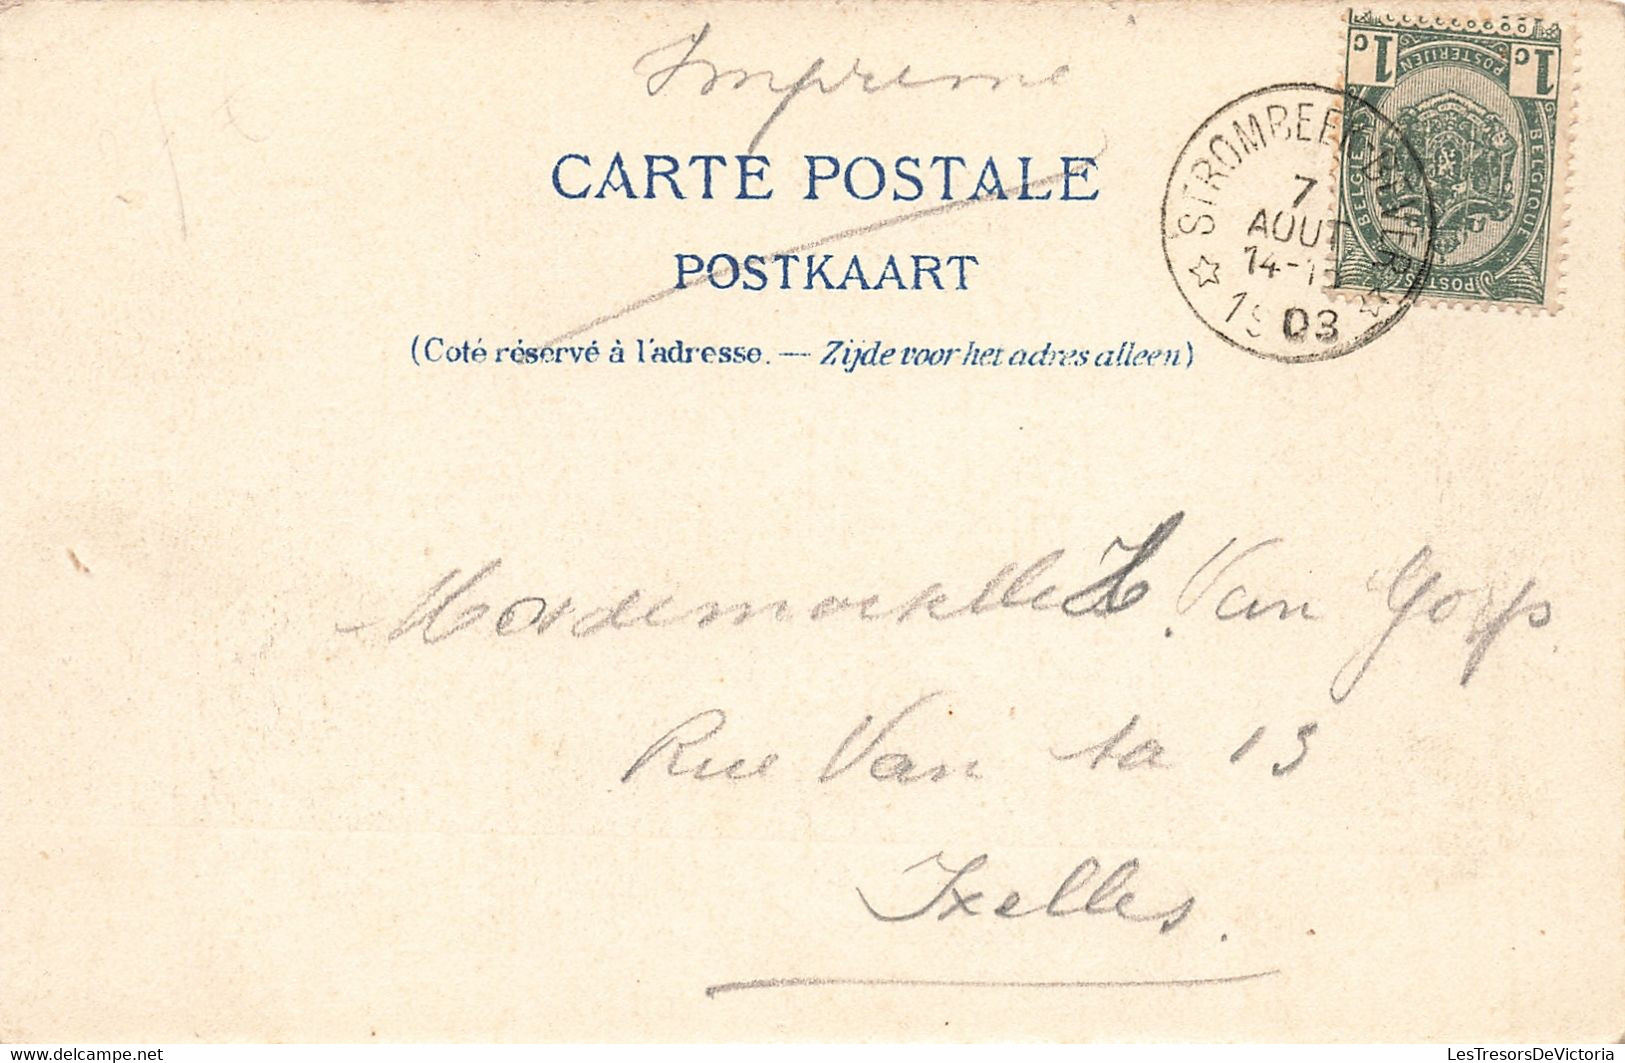 Imprimé
CARTE POSTALE
POSTKAART
(Coté réservé à l'adresse. — Zijde voor het adres alleen)
1c 1c
POSTERIJEN
BELGIE BELGIQUE
POSTES
STROMBEEK
7
AOUT
14-15
1903
Mademoiselle H. Van Gorp
Rue Van 13
Ixelles.
delcampe.net
LesTresorsDeVictoria